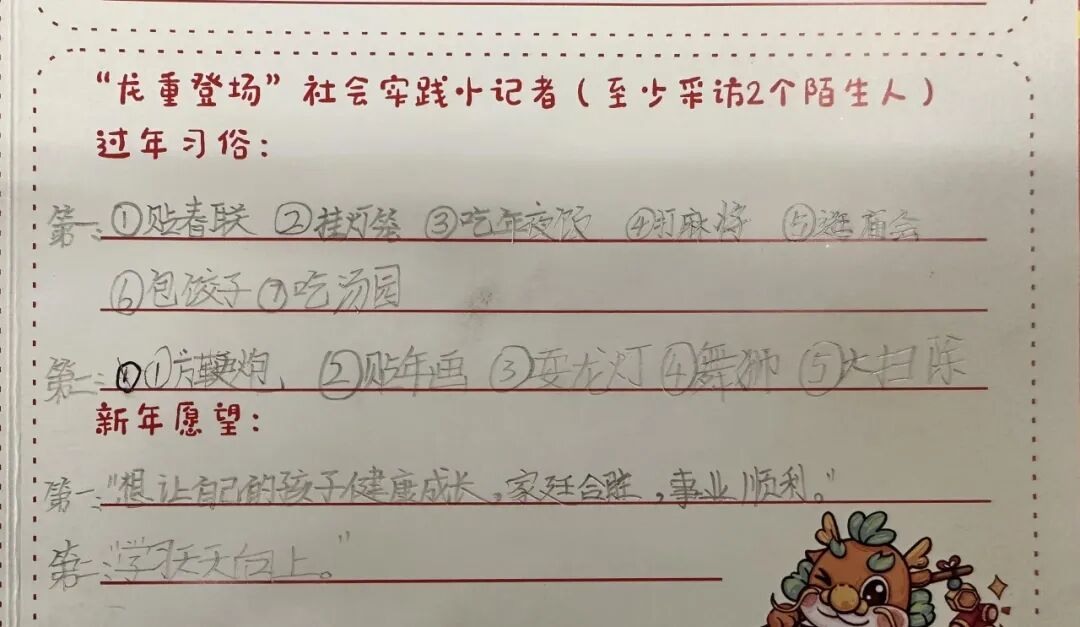 “龙重登场”社会实践小记者（至少采访2个陌生人）
过年习俗：
第一：①贴春联 ②挂灯笼 ③吃年夜饭 ④打麻将 ⑤逛庙会
⑥包饺子⑦吃汤园
第二：①放鞭炮、②贴年画 ③耍龙灯④舞狮 ⑤大扫除
新年愿望：
第一：“想让自己的孩子健康成长，家廷合胜，事业顺利。”
第二：“学习天天向上。”